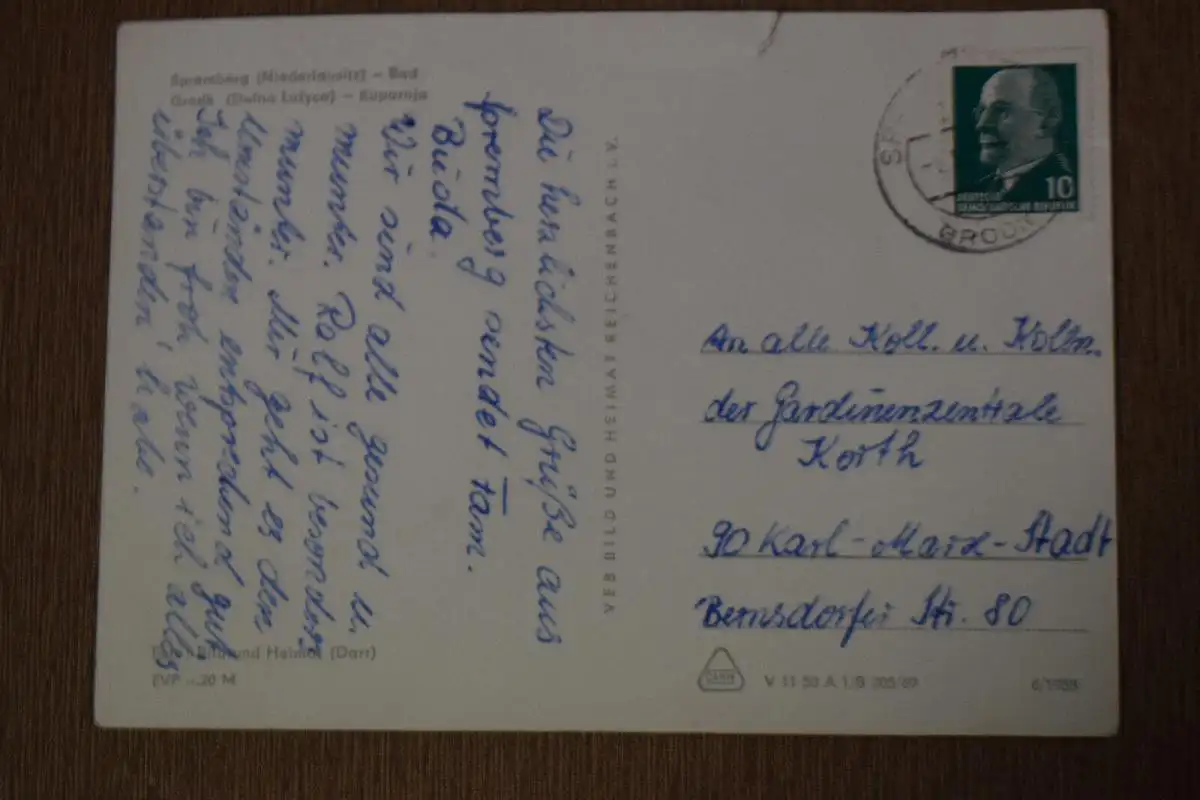 Spremberg (Niederlausitz) – Bad
Grodk (Delna Łužyca) – Kupanja
Die herzlichsten Grüße aus
Spremberg sendet Fam.
Buda.
Wir sind alle gesund u.
munter. Ralf ist besonders
munter. Mir geht es den
Umständen entsprechend gut.
Ich bin froh wenn ich alles
überstanden habe.
Bild und Heimat (Darr)
EVP –.20 M
VEB BILD UND HEIMAT REICHENBACH I. V.
10
DEUTSCHE
DEMOKRATISCHE REPUBLIK
An alle Koll. u. Kolln.
der Gardinenzentrale
Korth
90 Karl-Marx-Stadt
Bernsdorfer Str. 80
V 11 50 A 1/B 305/69
6/1958